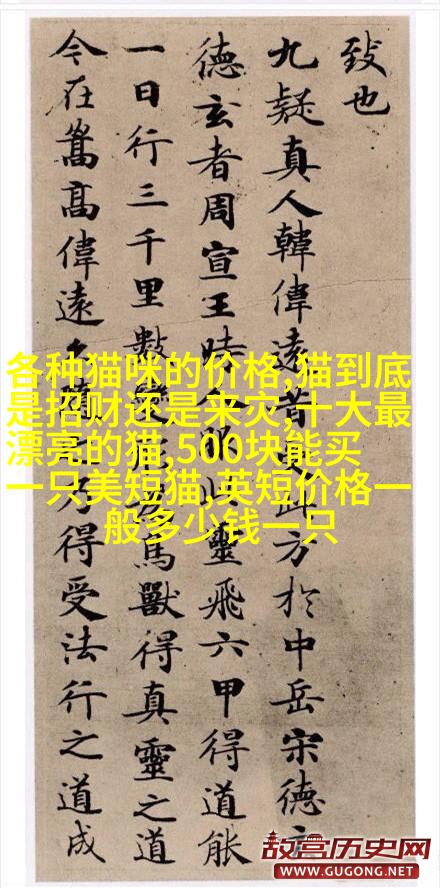 致也
九疑真人韓偉遠昔此方於中岳宋德
德玄者周宣王時此靈飛六甲得道能
一日行三千里數變鳥獸得真靈之道
今在嵩高偉遠乃得受法行之道成
各种猫咪的价格,猫到底
是招财还是来灾,十大最
漂亮的猫,500块能买
一只美短猫,英短价格一
般多少钱一只
故宫历史网
WWW.GUGONG.NET